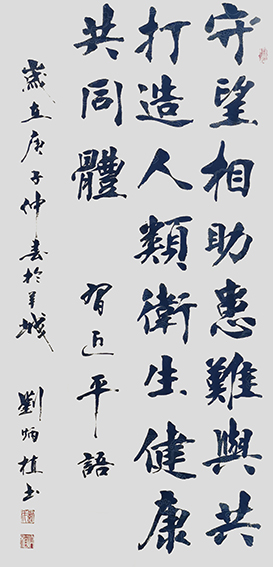 守望相助患難與共
打造人類衛生健康
共同體
習近平語
歲在庚子仲春於羊城
劉炳植書